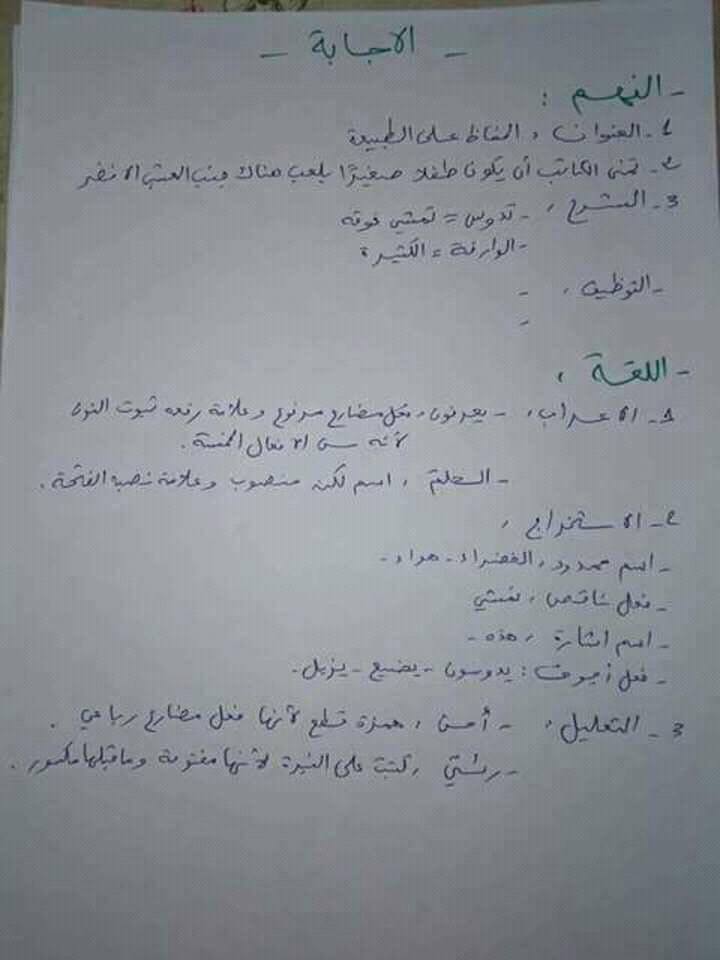 - الاجابة -
- الفهم :
1- العنوان : الحفاظ على الطبيعة
2- تمنى الكاتب أن يكون طفلا صغيرًا يلعب هناك العشب الاخضر
3- الشرح : - تدوس = تمشي فوقه
- الوارفة = الكثيرة
- التوظيف : -
-
- اللغة :
1- الاعراب : - يعرفون : فعل مضارع مرفوع وعلامة رفعه ثبوت النون
لأنه من الافعال الخمسة .
- : اسم لكن منصوب وعلامة نصبه الفتحة .
2- الاستخراج :
- اسم ممدود : الخضراء - هواء -
- فعل ناقص : نمشي
- اسم اشارة : هذه -
- فعل أجوف : يدوسون - يضيع - يزيل -
3- التعليل : - : همزة قطع لأنها فعل مضارع رباعي .
- رئتي : كتبت على النبرة لأنها مفتوحة وماقبلها مكسور .